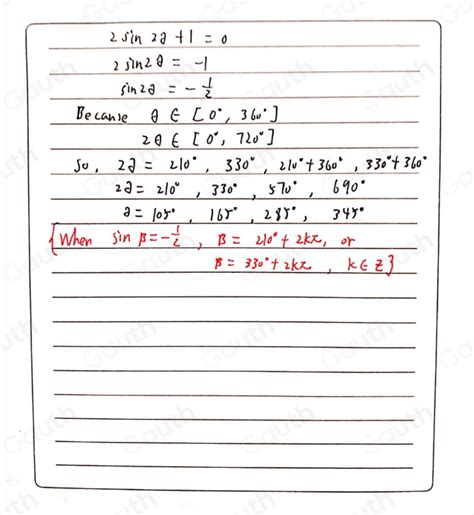 2 sin 2θ + 1 = 0
2 sin2θ = -1
sin2θ = -1/2
Because θ ∈ [0°, 360°]
2θ ∈ [0°, 720°]
So, 2θ = 210°, 330°, 210°+360°, 330°+360°
2θ = 210°, 330°, 570°, 690°
θ = 105°, 165°, 285°, 345°
{When sin β = -1/2, β = 210° + 2kπ, or
β = 330° + 2kπ, k ∈ Z}